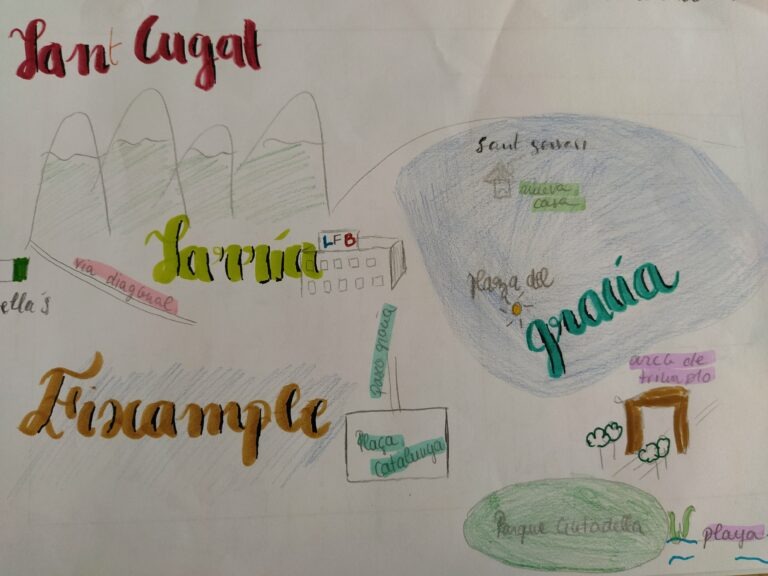 Sant Cugat
sant gervasi
nueva
casa
Sarría
LFB
via diagonal
ella's
plaza del
gracia
paseo gracia
arch de
triumplo
Eixample
Plaça
Catalunya
Parque Ciutadella
playa